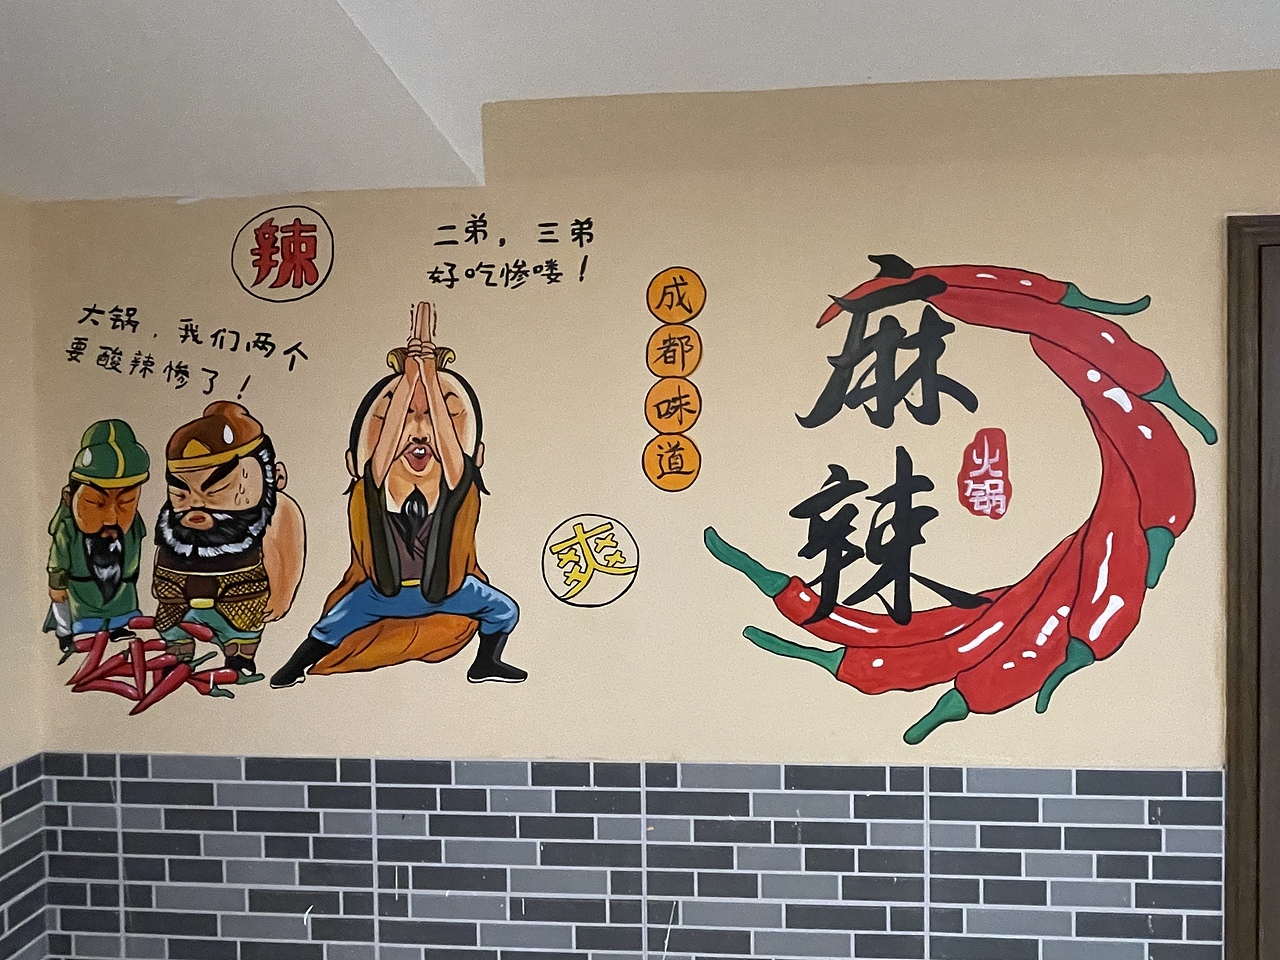 辣
大锅，我们两个
要酸辣惨了！
二弟，三弟
好吃惨喽！
爽
成都味道
麻辣
火锅